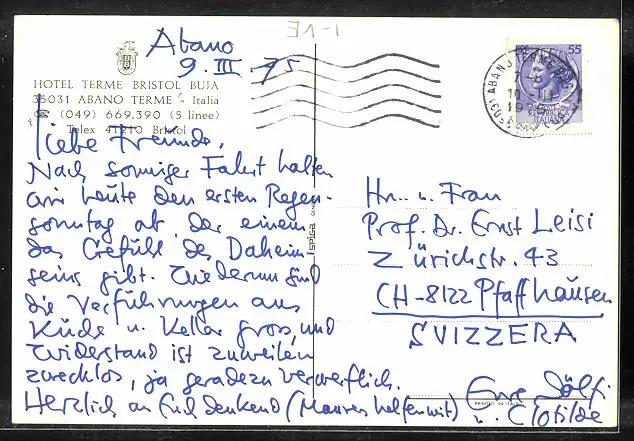 Abano
9. III. 75
HOTEL TERME BRISTOL BUJA
35031 ABANO TERME - Italia
☎ (049) 669.390 (5 linee)
Telex 41210 Bristol
liebe Freunde,
Nach sonniger Fahrt halten
wir heute den ersten Regen-
sonntag ab, der einem
das Gefühl des Daheim-
seins gibt. Wiederum sind
die Verführungen aus
Küche u. Keller gross, und
Widerstand ist zuweilen
zwecklos, ja geradezu verwerflich.
Herzlich an Euch denkend (Maures helfen mit)
Eure Dölf
u. Clotilde
Hr. u. Frau
Prof. Dr. Ernst Leisi
Zürichstr. 43
CH-8122 Pfaffhausen
SVIZZERA
55
ITALIANA
10
1975
PRINTED IN ITALY